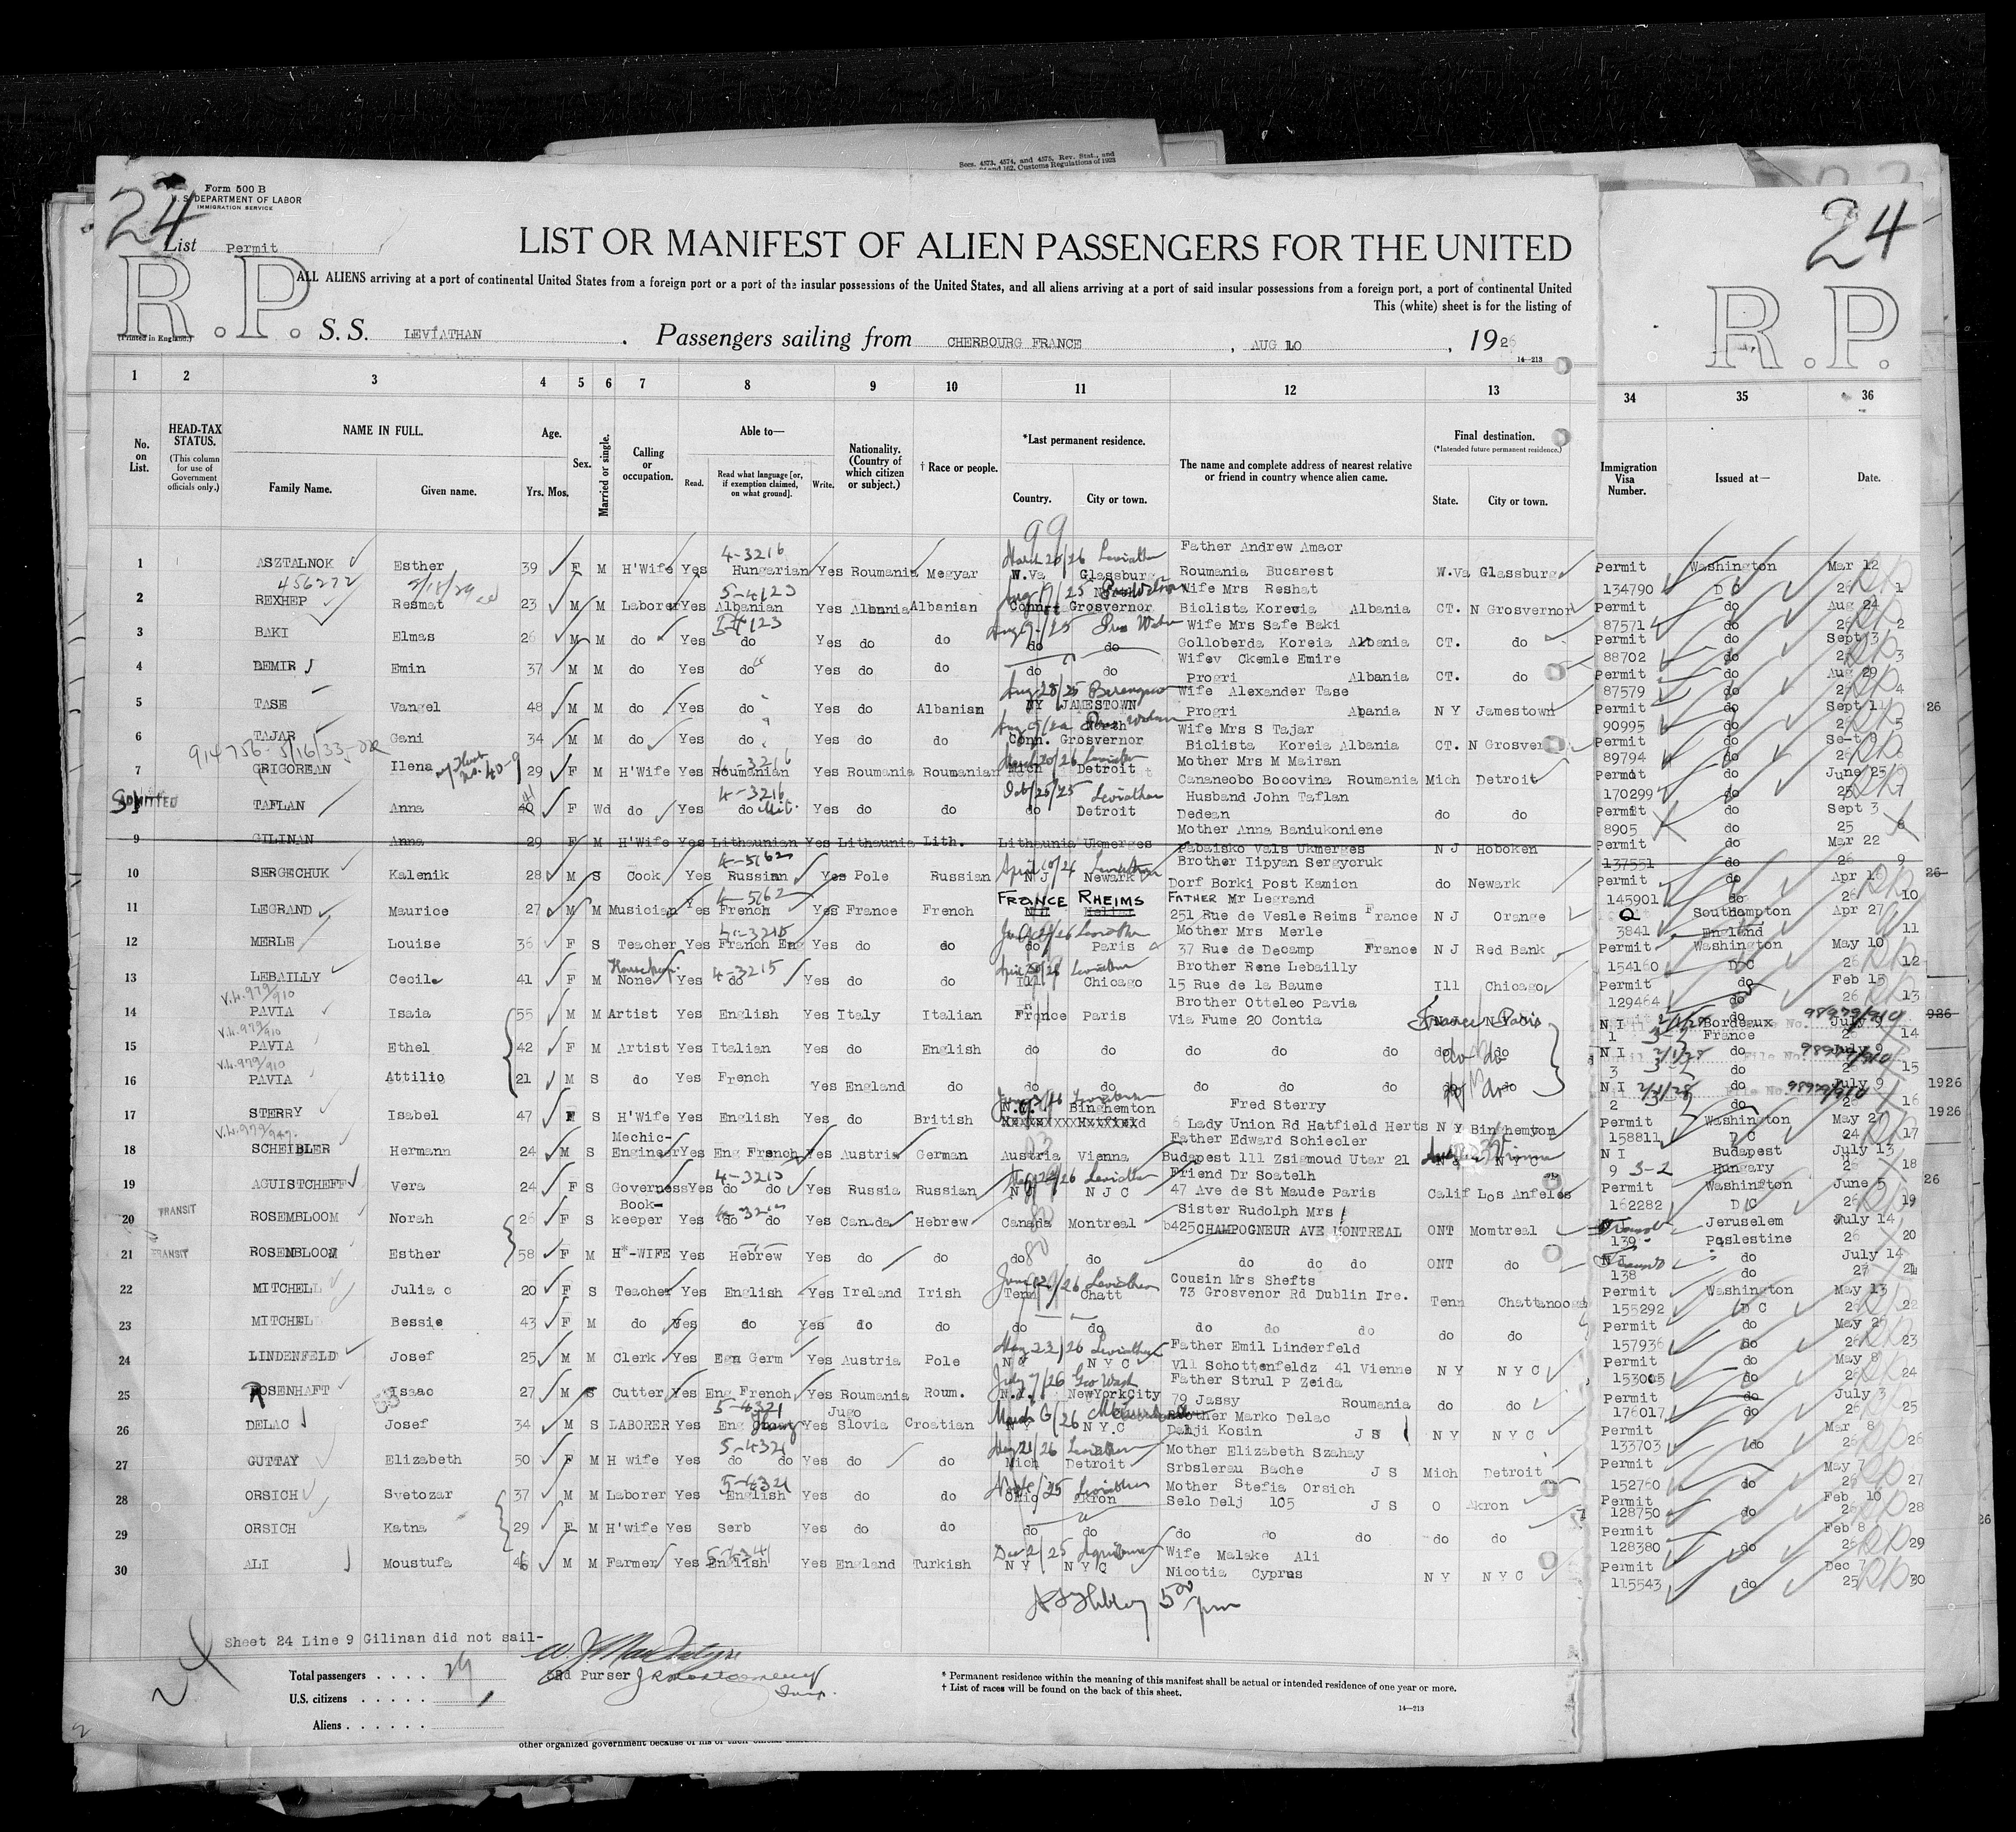 Secs. 4573, 4574, and 4575, Rev. Stat., and
and 162, Customs Regulations of 1923
24
Form 500 B
U. S. DEPARTMENT OF LABOR
IMMIGRATION SERVICE
List Permit
R.P.
(Printed in England.)
LIST OR MANIFEST OF ALIEN PASSENGERS FOR THE UNITED
ALL ALIENS arriving at a port of continental United States from a foreign port or a port of the insular possessions of the United States, and all aliens arriving at a port of said insular possessions from a foreign port, a port of continental United
This (white) sheet is for the listing of
S. S. LEVIATHAN . Passengers sailing from CHERBOURG FRANCE , AUG 10 , 1926
14—213
24
R.P.
1 2 3 4 5 6 7 8 9 10 11 12 13 34 35 36
No. on List. HEAD-TAX STATUS. (This column for use of Government officials only.) NAME IN FULL. Family Name. Given name. Age. Yrs. Mos. Sex. Married or single. Calling or occupation. Able to— Read. Read what language [or, if exemption claimed, on what ground]. Write. Nationality. (Country of which citizen or subject.) † Race or people. *Last permanent residence. Country. City or town. The name and complete address of nearest relative or friend in country whence alien came. Final destination. (*Intended future permanent residence.) State. City or town. Immigration Visa Number. Issued at— Date.
99
1 ASZTALNOK Esther 39 F M H'Wife Yes 4-3216 Hungarian Yes Roumania Megyar March 20/26 Leviathan W.Va Glassburg Father Andrew Amaor Roumania Bucarest W.Va Glassburg Permit 134790 Washington D C Mar 12 26 1
456272 2/18/29
2 REXHEP Resmat 23 M M Laborer Yes 5-4123 Albanian Yes Albania Albanian Aug 19/25 Conn Grosvernor Wife Mrs Reshat Biolista Korevia Albania CT. N Grosvernor Permit 87571 do Aug 24 26 2
3 BAKI Elmas 26 M M do Yes do Yes do do Aug 19/25 do do Wife Mrs Safe Baki Golloberda Koreia Albania CT. do Permit 88702 do Sept 3 3
4 DEMIR Emin 37 M M do Yes do Yes do do do do Wifev Ckemle Emire Progri Albania CT. do Permit 87579 do Aug 29 4
5 TASE Vangel 48 M M do Yes do Yes do Albanian Aug 28/25 Berengaria NY JAMESTOWN Wife Alexander Tase Progri Apania N Y Jamestown Permit 90995 do Sept 11 5
6 TAJAR Gani 34 M M do Yes do Yes do do Conn. Grosvernor Wife Mrs S Tajar Biolista Koreia Albania CT. N Grosver Permit 89794 do Se-t 8 6
914756- 5/16/33
7 GRIGOREAN Ilena 29 F M H'Wife Yes 4-3216 Roumanian Yes Roumania Roumanian March 20/26 Leviathan Mich Detroit Mother Mrs M Mairan Cananeobo Bocovina Roumania Mich Detroit Permit 170299 do June 25 7
ADMITTED
TAFLAN Anna 40 F Wd do Yes 4-3216 do Yes do do Oct/25/25 Leviathan do Detroit Husband John Taflan Dedean do do Permit 8905 do Sept 3 25 8
9 GILINAN Anna 29 F M H'Wife Yes Lithaunian Yes Lithuania Lith. Lithaunia Ukmerges Mother Anna Baniukoniene Pabaisko Vals Ukmerges N J Hoboken Permit 137551 do Mar 22 26 9
10 SERGECHUK Kalenik 28 M S Cook Yes 4-5162 Russian Yes Pole Russian April 10/24 Leviathan N J Newark Brother Iipyan Sergyoruk Dorf Borki Post Kamion do Newark Permit 145901 do Apr 16 26 10
11 LEGRAND Maurice 27 M M Musician Yes 4-5162 French Yes France French FRANCE RHEIMS FATHER Mr Legrand 251 Rue de Vesle Reims France N J Orange Q 3841 Southampton England Apr 27 11
12 MERLE Louise 36 F S Teacher Yes 4-3215 Franch Eng Yes do do do Paris Mother Mrs Merle 37 Rue de Decamp France N J Red Bank Permit 154160 Washington D C May 10 26 12
13 LEBAILLY Cecile 41 F M None Yes 4-3215 do Yes do do Leviathan Ill Chicago Brother Rene Lebailly 15 Rue de la Baume Ill Chicago Permit 129464 do Feb 15 26 13
V.L. 979/910
14 PAVIA Isaia 55 M M Artist Yes English Yes Italy Italian France Paris Brother Otteleo Pavia Via Fume 20 Contia France Paris N I 1 Bordeaux France July 9 14
V.L. 979/910
15 PAVIA Ethel 42 F M Artist Yes Italian Yes do English do do do do do do do N I 3 do July 9 15
V.L. 979/910
16 PAVIA Attilio 21 M S do Yes French Yes England do do do do do do do do N I 2 do July 9 16
17 STERRY Isabel 47 F S H'Wife Yes English Yes do British N.Y. Binghemton Fred Sterry 6 Lady Union Rd Hatfield Herts N Y Binghemton Permit 158811 Washington D C May 27 24 17
V.L. 979/947.
18 SCHEIBLER Hermann 24 M S Mechic- Engineer Yes Eng French Yes Austria German Austria Vienna Father Edward Schiecler Budapest 111 Zsigmoud Utar 21 N Y N Y C N I 9 3-2 Budapest Hungary July 13 18
19 AGUISTCHEFF Vera 24 F S Governess Yes 4-3215 do do Yes Russia Russian Leviathan N J N J C Friend Dr Soatelh 47 Ave de St Maude Paris Calif Los Anfeles Permit 162282 Washinfton D C June 5 26 19
20 TRANSIT ROSEMBLOOM Norah 26 F S Book- keeper Yes do do Yes Canada Hebrew Canada Montreal Sister Rudolph Mrs b425 CHAMPOGNEUR AVE MONTREAL ONT Momtreal Transit 139 Jeruselem Paslestine July 14 26 20
21 TRANSIT ROSENBLOOM Esther 58 F M H*-WIFE Yes Hebrew Yes do do do do do do do ONT do 138 do do July 14 27 21
22 MITCHELL Julia c 20 F S Teacher Yes English Yes Ireland Irish Leviathan Tenn Chatt Cousin Mrs Shefts 73 Grosvenor Rd Dublin Ire. Tenn Chattanooga Permit 155292 Washington D C May 13 26 22
23 MITCHELL Bessie 43 F M do Yes do Yes do do do do do do do do do Permit 157936 do May 25 26 23
24 LINDENFELD Josef 25 M M Clerk Yes Egn Germ Yes Austria Pole May 23/26 Leviathan N Y N Y C Father Emil Linderfeld V11 Schottenfeldz 41 Vienne N Y N Y C Permit 153005 do May 8 26 24
25 ROSENHAFT Isaac 27 M S Cutter Yes Eng French Yes Roumania Roum. July 7/26 Geo Wash N.Y. NewYorkCity Father Strul P Zeida 79 Jassy Roumania do do Permit 176017 do July 3 26 25
26 DELAC Josef 34 M S LABORER Yes 5-4321 Eng Yes Jugo Slovia Croatian N Y N.Y.C Brother Marko Delac Danji Kosin J S N Y N Y C Permit 133703 do Mar 8 26 26
27 GUTTAY Elizabeth 50 F M H wife Yes 5-4321 do do Yes do do Leviathan Mich Detroit Mother Elizabeth Szahay Srbslerau Bache J S Mich Detroit Permit 152760 do May 7 26 27
28 ORSICH Svetozar 37 M M Laborer Yes 5-4321 English Yes do do Leviathan Ohio Akron Mother Stefia Orsich Selo Delj 105 J S O Akron Permit 128750 do Feb 10 26 28
29 ORSICH Katna 29 F M H'wife Yes Serb Yes do do do do do do do do do Permit 128380 do Feb 8 26 29
30 ALI Moustufa 46 M M Farmer Yes English Yes England Turkish Dec 2/25 N Y N Y C Wife Malake Ali Nicotia Cyprus N Y N Y C Permit 115543 do Dec 7 25 30
5 00 pm
Sheet 24 Line 9 Gilinan did not sail-
3Rd Purser
Total passengers . . . . 29
U.S. citizens . . . . .
Aliens . . . . . .
* Permanent residence within the meaning of this manifest shall be actual or intended residence of one year or more.
† List of races will be found on the back of this sheet.
14—213